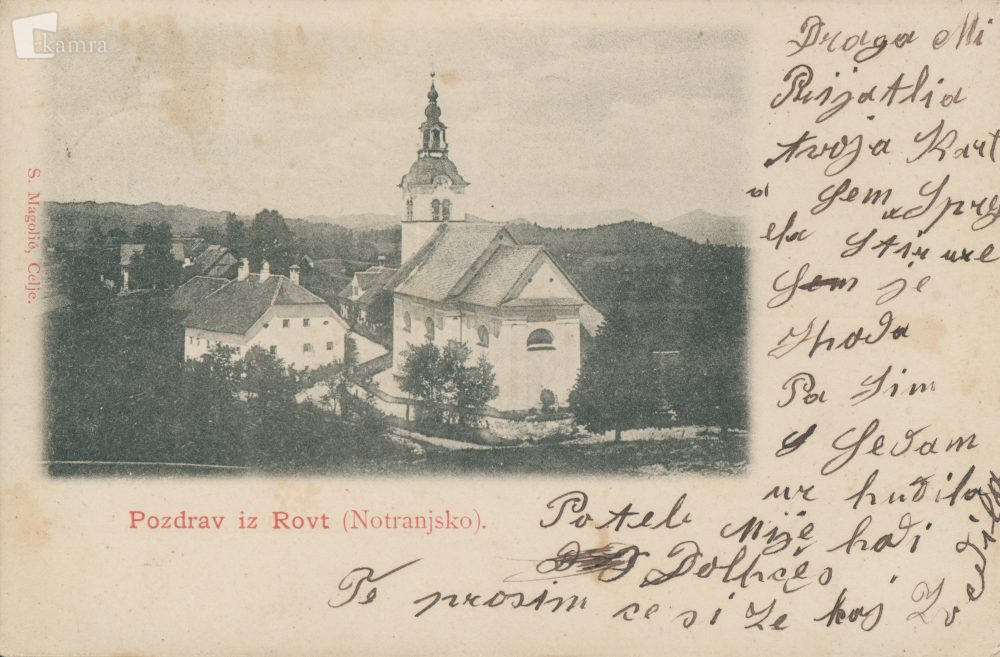 kamra
S. Magolič, Celje.
Pozdrav iz Rovt (Notranjsko).
Draga Mi
Prijatlia
tvoja Kart
a sem Spre
ela
Stir ure
sem je
Hoda
Pa sim
Sedam
ur hudila
Poteb Mije hodi
Dolhčęs
Te prosim ce si ze kaj Zvedila